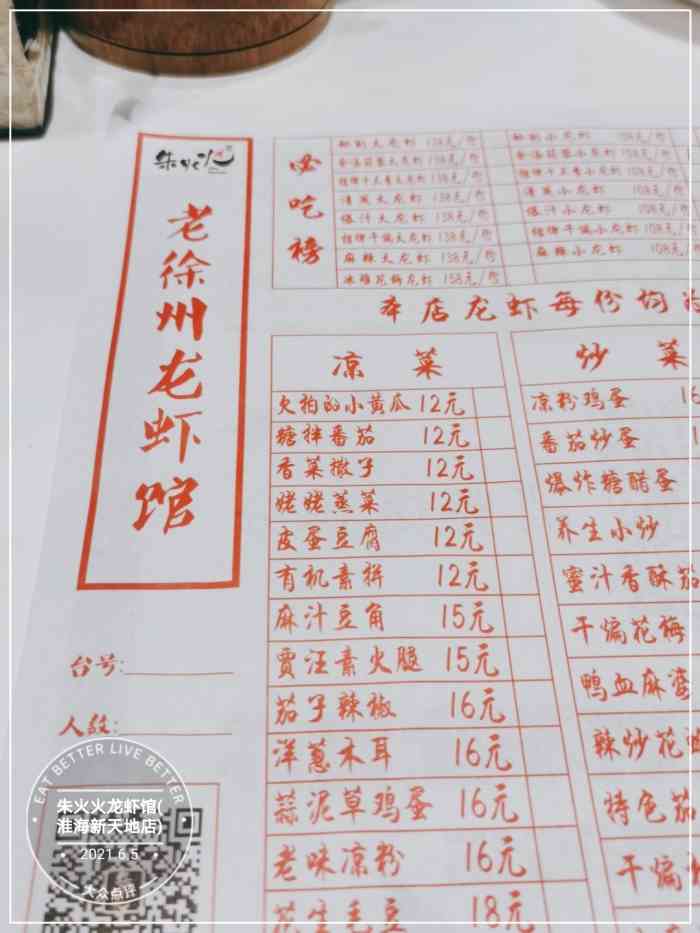 朱火火
老徐州龙虾馆
必吃榜
秘制大龙虾 138元/份
香浓蒜蓉大龙虾 138元/份
清蒸大龙虾 138元/份
爆汁大龙虾 138元/份
麻辣大龙虾 138元/份
冰雕花雕龙虾 158元/份
秘制小龙虾 108元/份
香浓蒜蓉小龙虾 108元/份
清蒸小龙虾 108元/份
爆汁小龙虾 108元/份
麻辣小龙虾 108元
本店龙虾每份均
凉菜
欠拍的小黄瓜 12元
糖拌番茄 12元
香菜馓子 12元
姥姥蒸菜 12元
皮蛋豆腐 12元
有机素拼 12元
麻汁豆角 15元
贾汪素火腿 15元
茄子辣椒 16元
洋葱木耳 16元
蒜泥草鸡蛋 16元
老味凉粉 16元
花生毛豆 18元
炒菜
凉粉鸡蛋
番茄炒蛋
爆炸糖醋蛋
养生小炒
蜜汁香酥茄
干煸花梅
鸭血麻婆
辣炒花
特色茄
干煸
台号:
人数:
EAT BETTER LIVE BETTER
朱火火龙虾馆(
淮海新天地店)
2021.6.5
大众点评